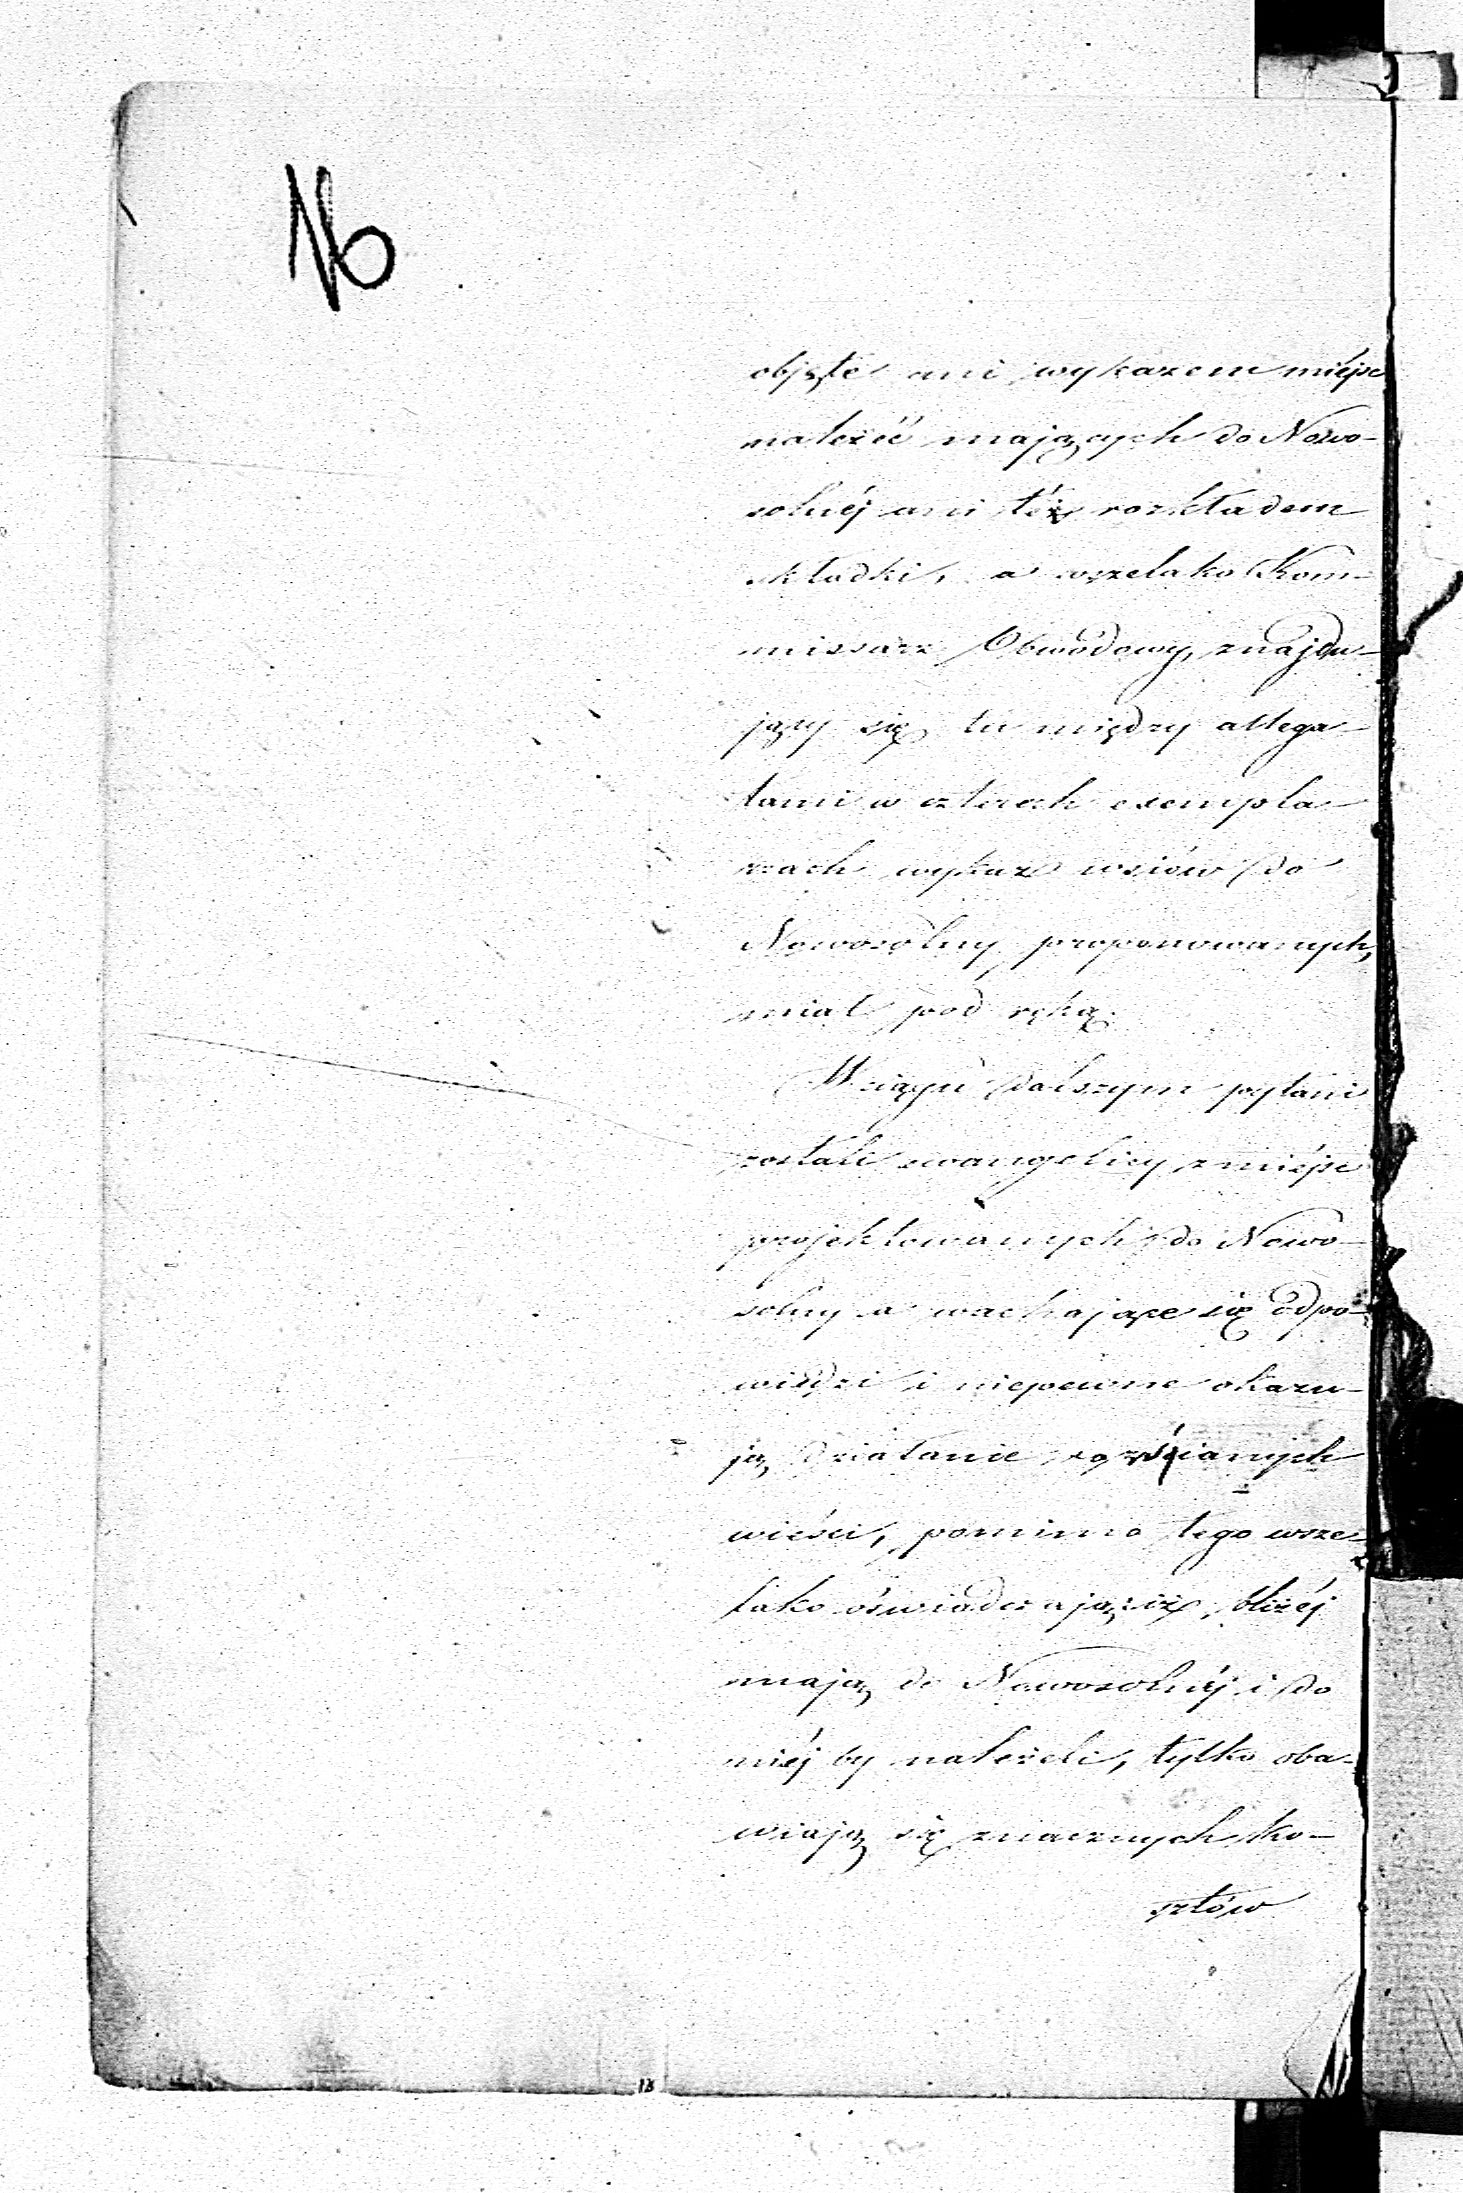 16
objęte ani wykazem miéjsc
należéć mających do Nowo-
solnéj ani téż rozkładem
składki, a wszelako Kom-
missarz Obwodowy, znajdu-
jący się tu między allega-
tami w czterech exempla-
rzach wykaz wsiów do
Nowosolny proponowanych,
miał pod ręką.
W ciągu dalszym pytani
zostali ewangelicy z miéjsc
projektowanych do Nowo-
solny a wachające się odpo-
wiedzi i niepewne okazu-
ją działanie rozsianych
wieści, pomimo tego wsze-
lako oświadczają iż bliżéj
mają do Nowosolnéj i do
niéj by należeli, tylko oba-
wiają się znacznych ko-
sztów